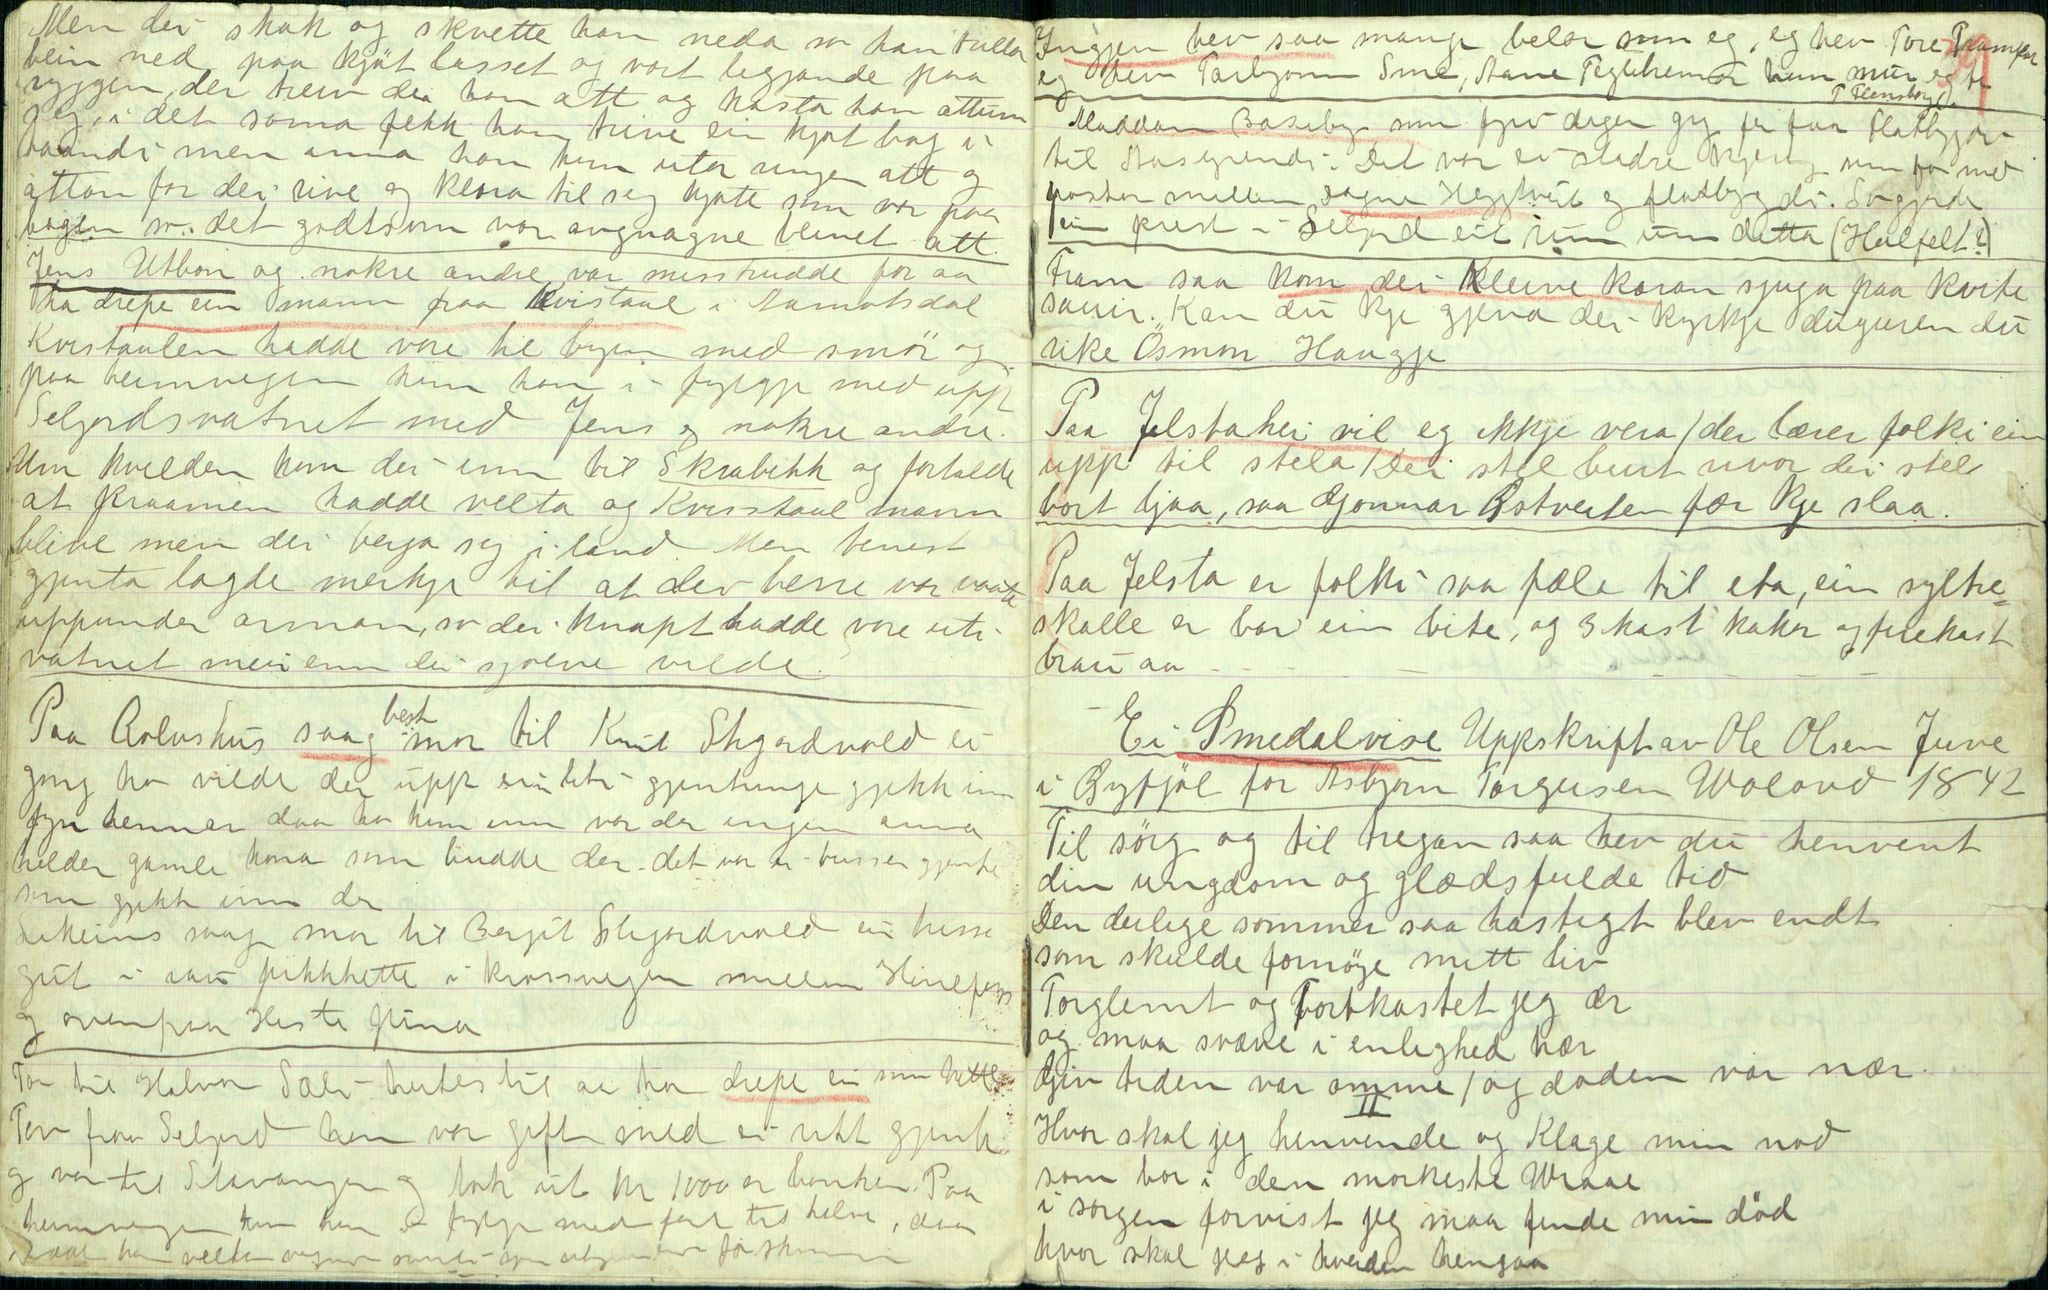 Men dei skok og skvette han neda so han tulla
bein ned paa kjøt lasset og vart liggjande paa
ryggen, der treiv dei han att og kasta han attum
seg, i det soma fekk han trive ein kjøt bog i
haandi men anna han kom utor ungen att og
attan for dei rive og klora til seg kjøte som var paa
bogen so det godt som var avgnagne beinet att.
Jens Utbøn og nokre andre var misstrudde for aa
ha drepe ein mann fraa Kvistaul i Aamotsdal
Kvistaulen hadde vore til byen med smör og
paa heimvegen kom han i fylgje med upp
Seljordsvatnet med Jens og nokre andre.
Um kvelden kom dei inn til Skrabekk og fortalde
at praamen hadde velta og Kvisstaul mannen
blive men dei berga seg i land. Men tenest
gjenta lagde merkje til at dei berre var vaate
uppunder arman, so dei knapt hadde vore uti
vatnet meir enn dei sjølve vilde.
Paa Rolvshus saag best mor til Knut Skjordvold ei
gong ho vilde der upp ein liti gjentunge gjekk inn
fyr henner daa ho kom inn var der ingen anna
helder gamle kona som budde der. det var ei tusse gjente
som gjekk inn der
Likeins saag mor til Bergit Skjordvold ein tusse
gut i rau pikkhette i krossvegen millom
og ovanpaa Heste
Tor til Halvor Sæli hertes til aa ha drepe ein som heitte
Tov fraa Seljord han var gift med ei rik gjente
og var til Stavanger og tok ut kr 1000 or banken. Paa
heimvegen kom han i fylgje med far til Halv, daa
Ingjen hev saa mange belar som eg, eg hev Tore Framfor
eg hev Tarbjønn Sme, Aane Teglheim or han mur eg te
T Flensborg d.
Maddam Baseby som fyrr dagen gjg fer fraa Flatbygdi
til Aasgrendi. Det var ei sladre kjering som for med
postar millom sogne Heggtveit og flatbygdi. So gjorde
ein prest i Seljord eit rim um detta (Halfelt?)
Fram saa kom dei Kleive karan sjuga paa kvite
sauir. Kan du kje gjeva dei kyrkje duguren du
rike Ösmon Haugje
Paa Jelstahei vil eg ikkje vera / der lærer folki ein
upp til stela / Dei stel burt uvor dei stel
bort ljaa, saa Gonnar Rotveiten fær kje slaa.
Paa Jelsta er folki saa fæla til eta, ein syltre=
skalle er bar ein bite, og 3 kast kakur og firekast
brau aa
Ei Smedalvise Uppskrift av Ole Olsen Juve
i Byfjöl for Asbjørn Torgusen Woland 1842
Til sörg og til tregan saa hev du henvent
din ungdom og glædsfulde tid
Den deilige sommer saa hastigt blev endt
som skulde fornøye mitt liv
Forglemt og Fortkastet jeg ær
og maa svæve i enlighed hær
Gjiv tiden var omme / og døden var nær.
II
Hvor skal jeg henvende og Klage min nød
som bor i den morkeste Wraae
i sorgen forvist jeg maa finde min död
hvor skal jeg i hverden hengaa